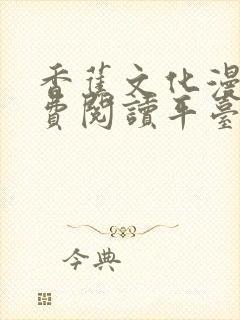 香蕉文化漫
費閱讀平臺
今典